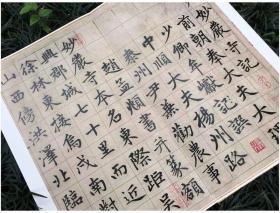 妙嚴寺記
前朝奉大夫大理
少卿牟巘撰
中順大夫揚州路
泰州尹兼勸農事
趙孟頫書并篆額
妙嚴寺本名東際距吳
興郡城七十里而近
徐林東接烏戍南對
山西傍洪澤北臨